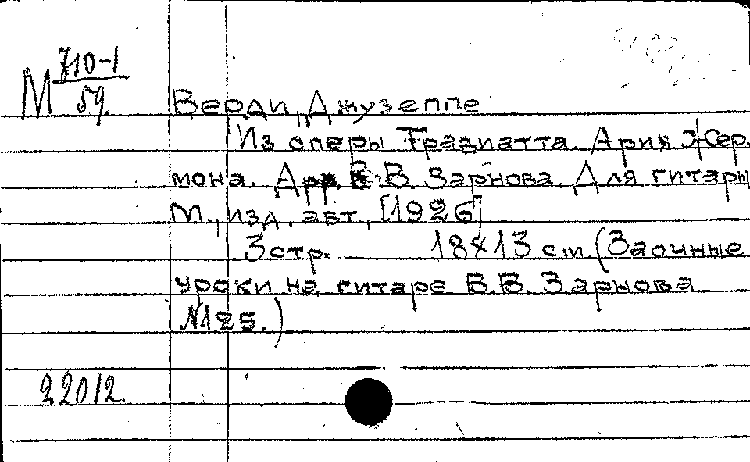 М 710-1
59.
Верди, Джузеппе
Из оперы Травиатта. Ария Жер.
мона. Арр. В.В. Зарнова. Для гитары
М., изд. авт., [1926]
3 стр. 18x13 см (Заочные
уроки на гитаре В.В. Зарнова
№125.)
22012.